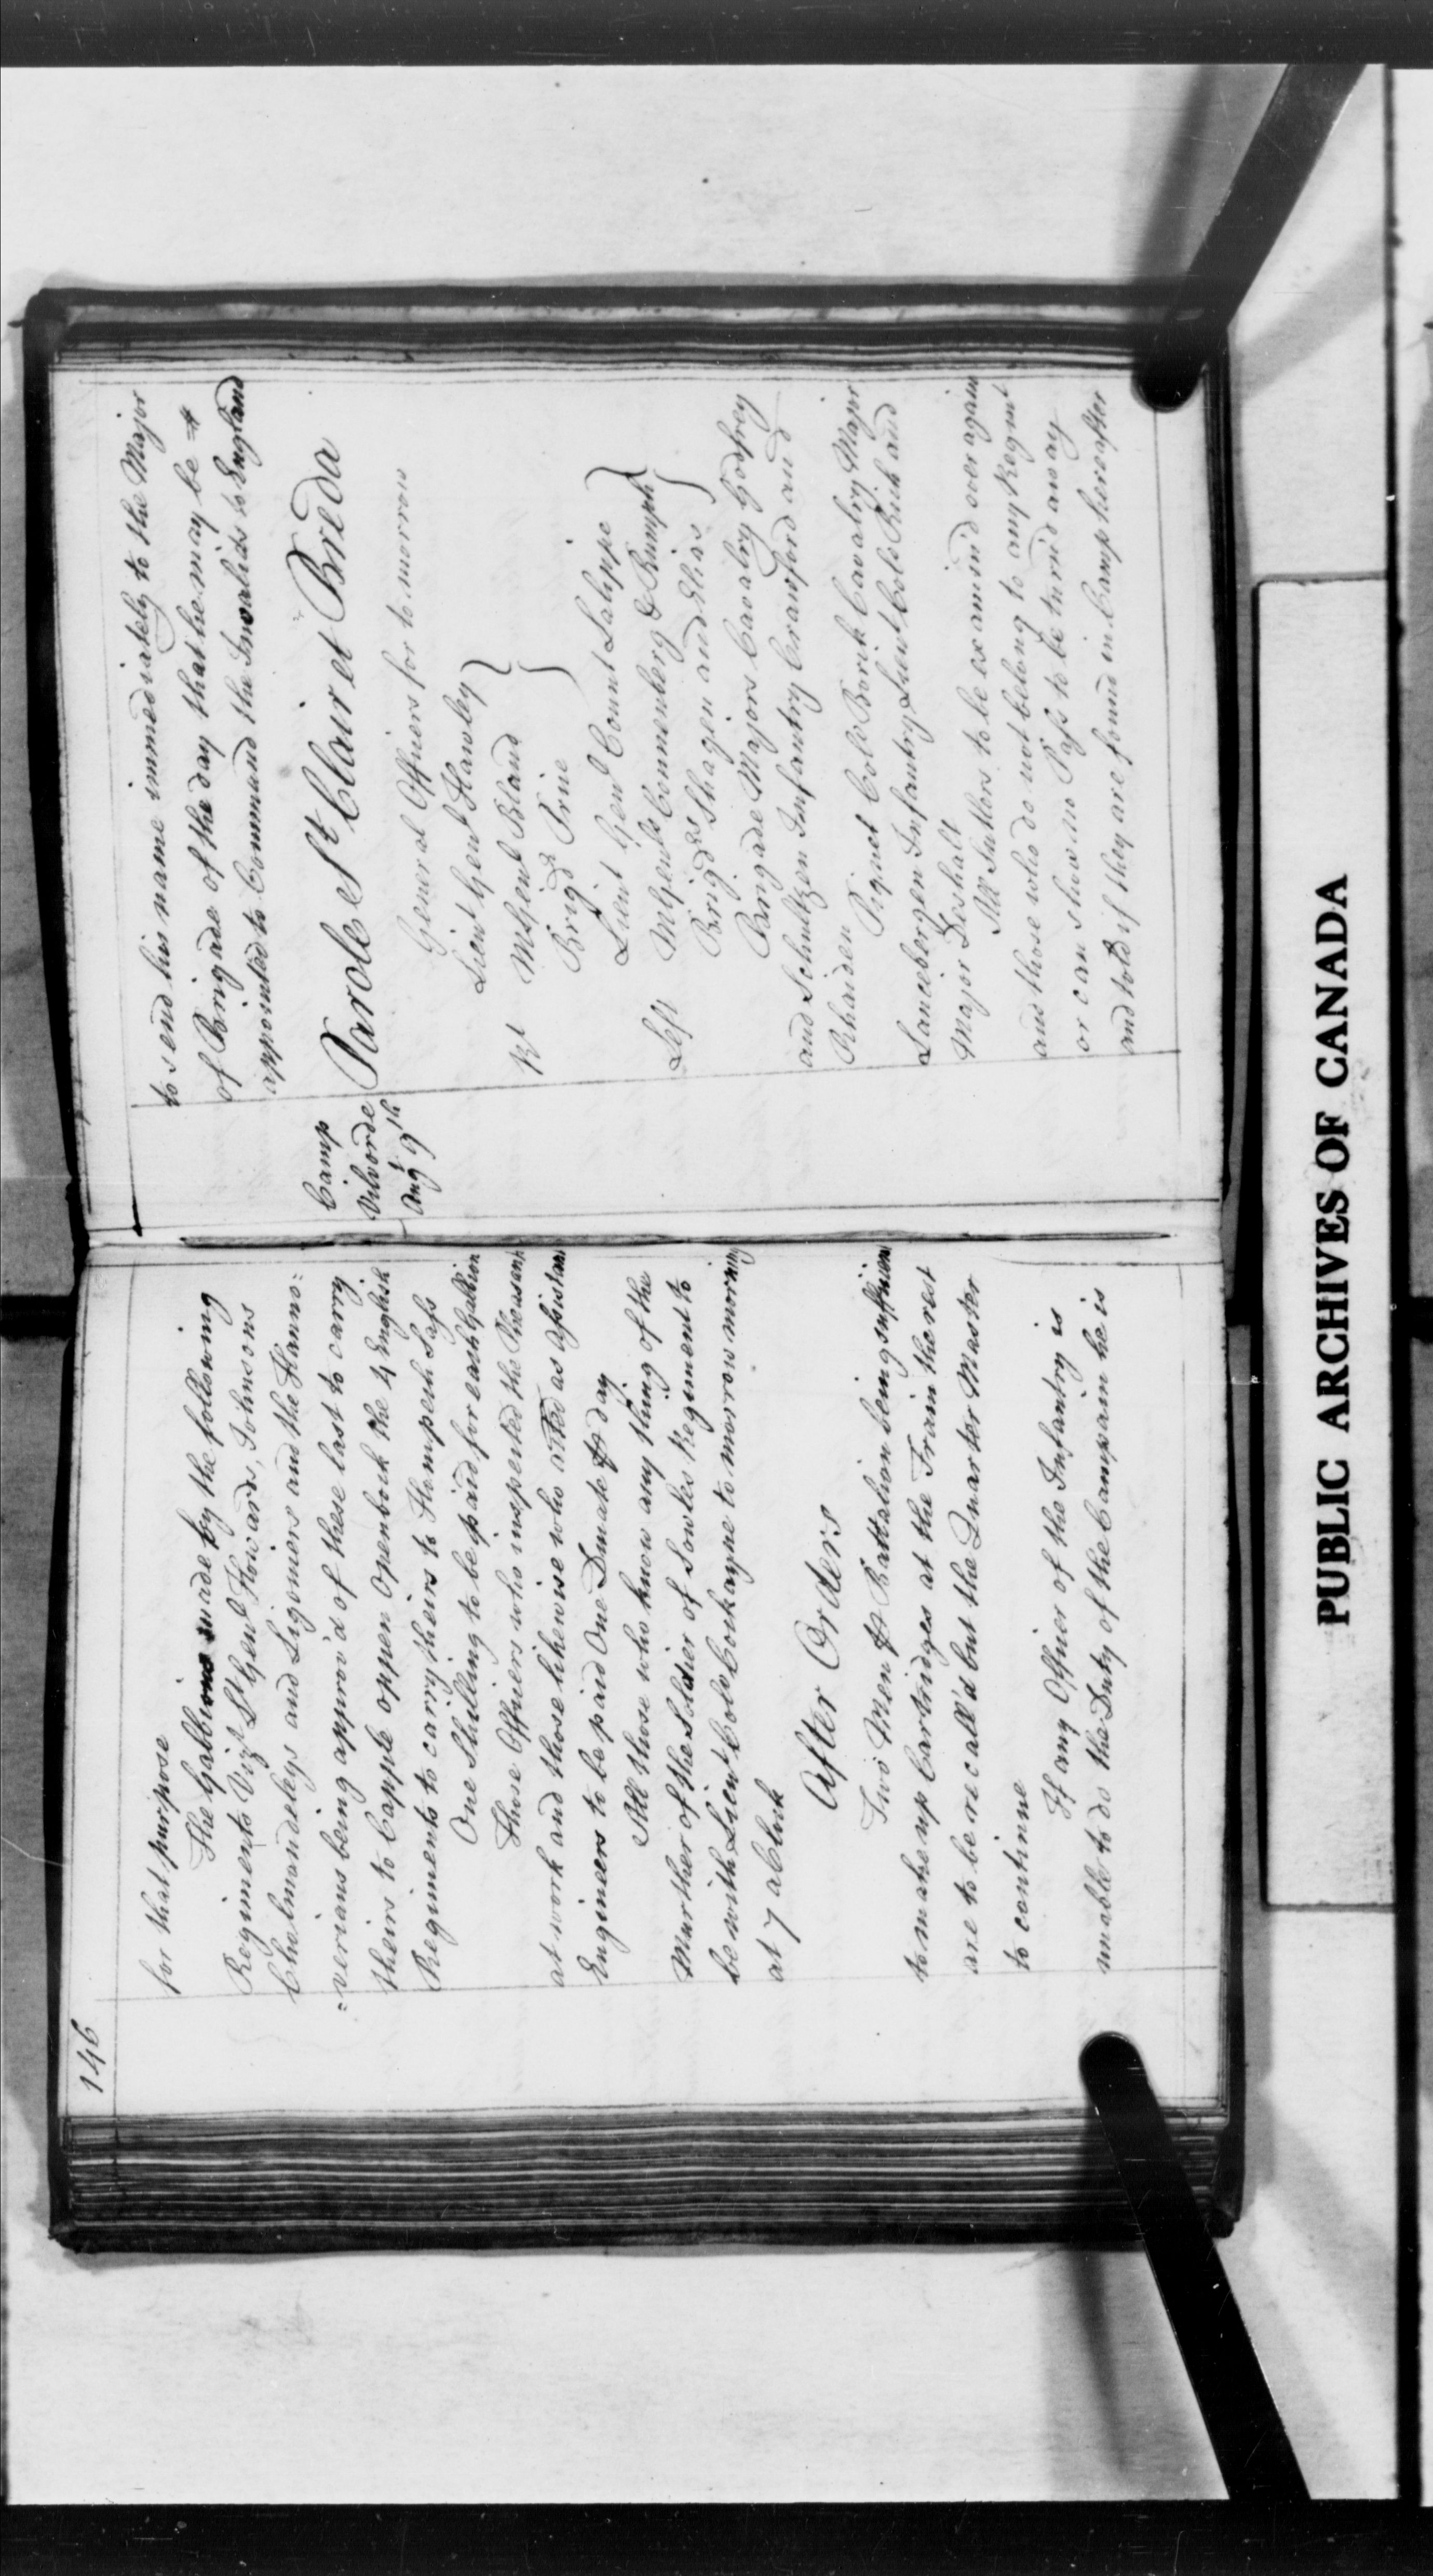 146
for that purpose
The Gabbions made by the following
Regiments Vizt Lt Genl Howards, Johnsons
Cholmondeleys and Ligoniers and the Hanno=
=verians being approv'd of these last to carry
theirs to Capple oppen Openbeck the 4 English
Regiments to carry theirs to Hempesh Sass
One Shilling to be paid for each Gabbion
Those Officers who inspected the Pheasent
at work and those likewise who acted as Assistant
Engineers to be paid One Ducate P day
All those who know any thing of the
Murther of the Soldier of Sowles Regiment to
be with Lieut Colo Cockayne to morrow morning
at 7 aClock
After Orders
Two Men P Battalion being sufficien
to make up Cartridges at the Train the rest
are to be recall'd but the Quarter Master
to continue
If any Officer of the Infantry is
unable to do the Duty of the Campain he is
to send his name immediately to the Major
of Brigade of the day that he may be
appointed to Command the Invalids to England
Camp
Vilvorde
Augt 9th
Parole St Clair et Breda
General Officers for to morrow
Lieut Genl Hawley
Rt MGenl Bland
Brigdr Prue
Lieut Genl Count Lalippe
Left MGenls Conmenberg & Rumph
Brigdrs Shagen and Elias
Brigade Majors Cavalry Godfrey
and Schultzen Infantry Crawford and
Rhaiden
Piquet Colo Borik Cavalry Major
Lanciebergen Infantry Lieut Colo Rich and
Major Deshalt
All Sutlors to be examin'd over again
and those who do not belong to any Regimt
or can shew no Pass to be turn'd away
and told if they are found in Camp hereafter
PUBLIC ARCHIVES OF CANADA